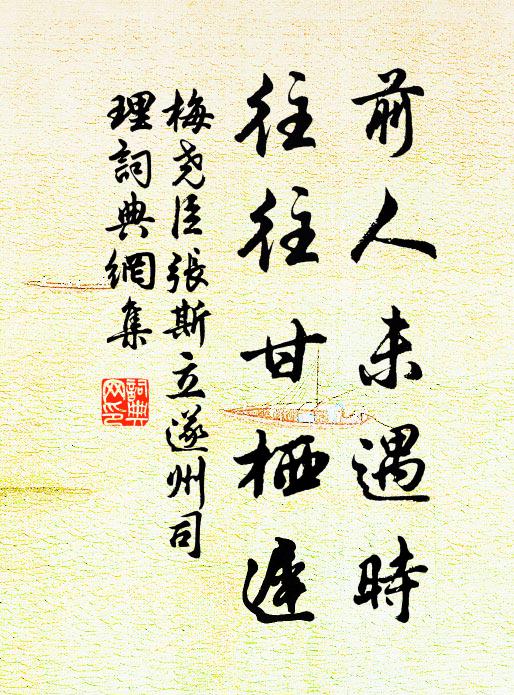 前人未遇時
往往甘栖遲
梅尧臣張斯立遂州司
理詞典網集
詞典
网印